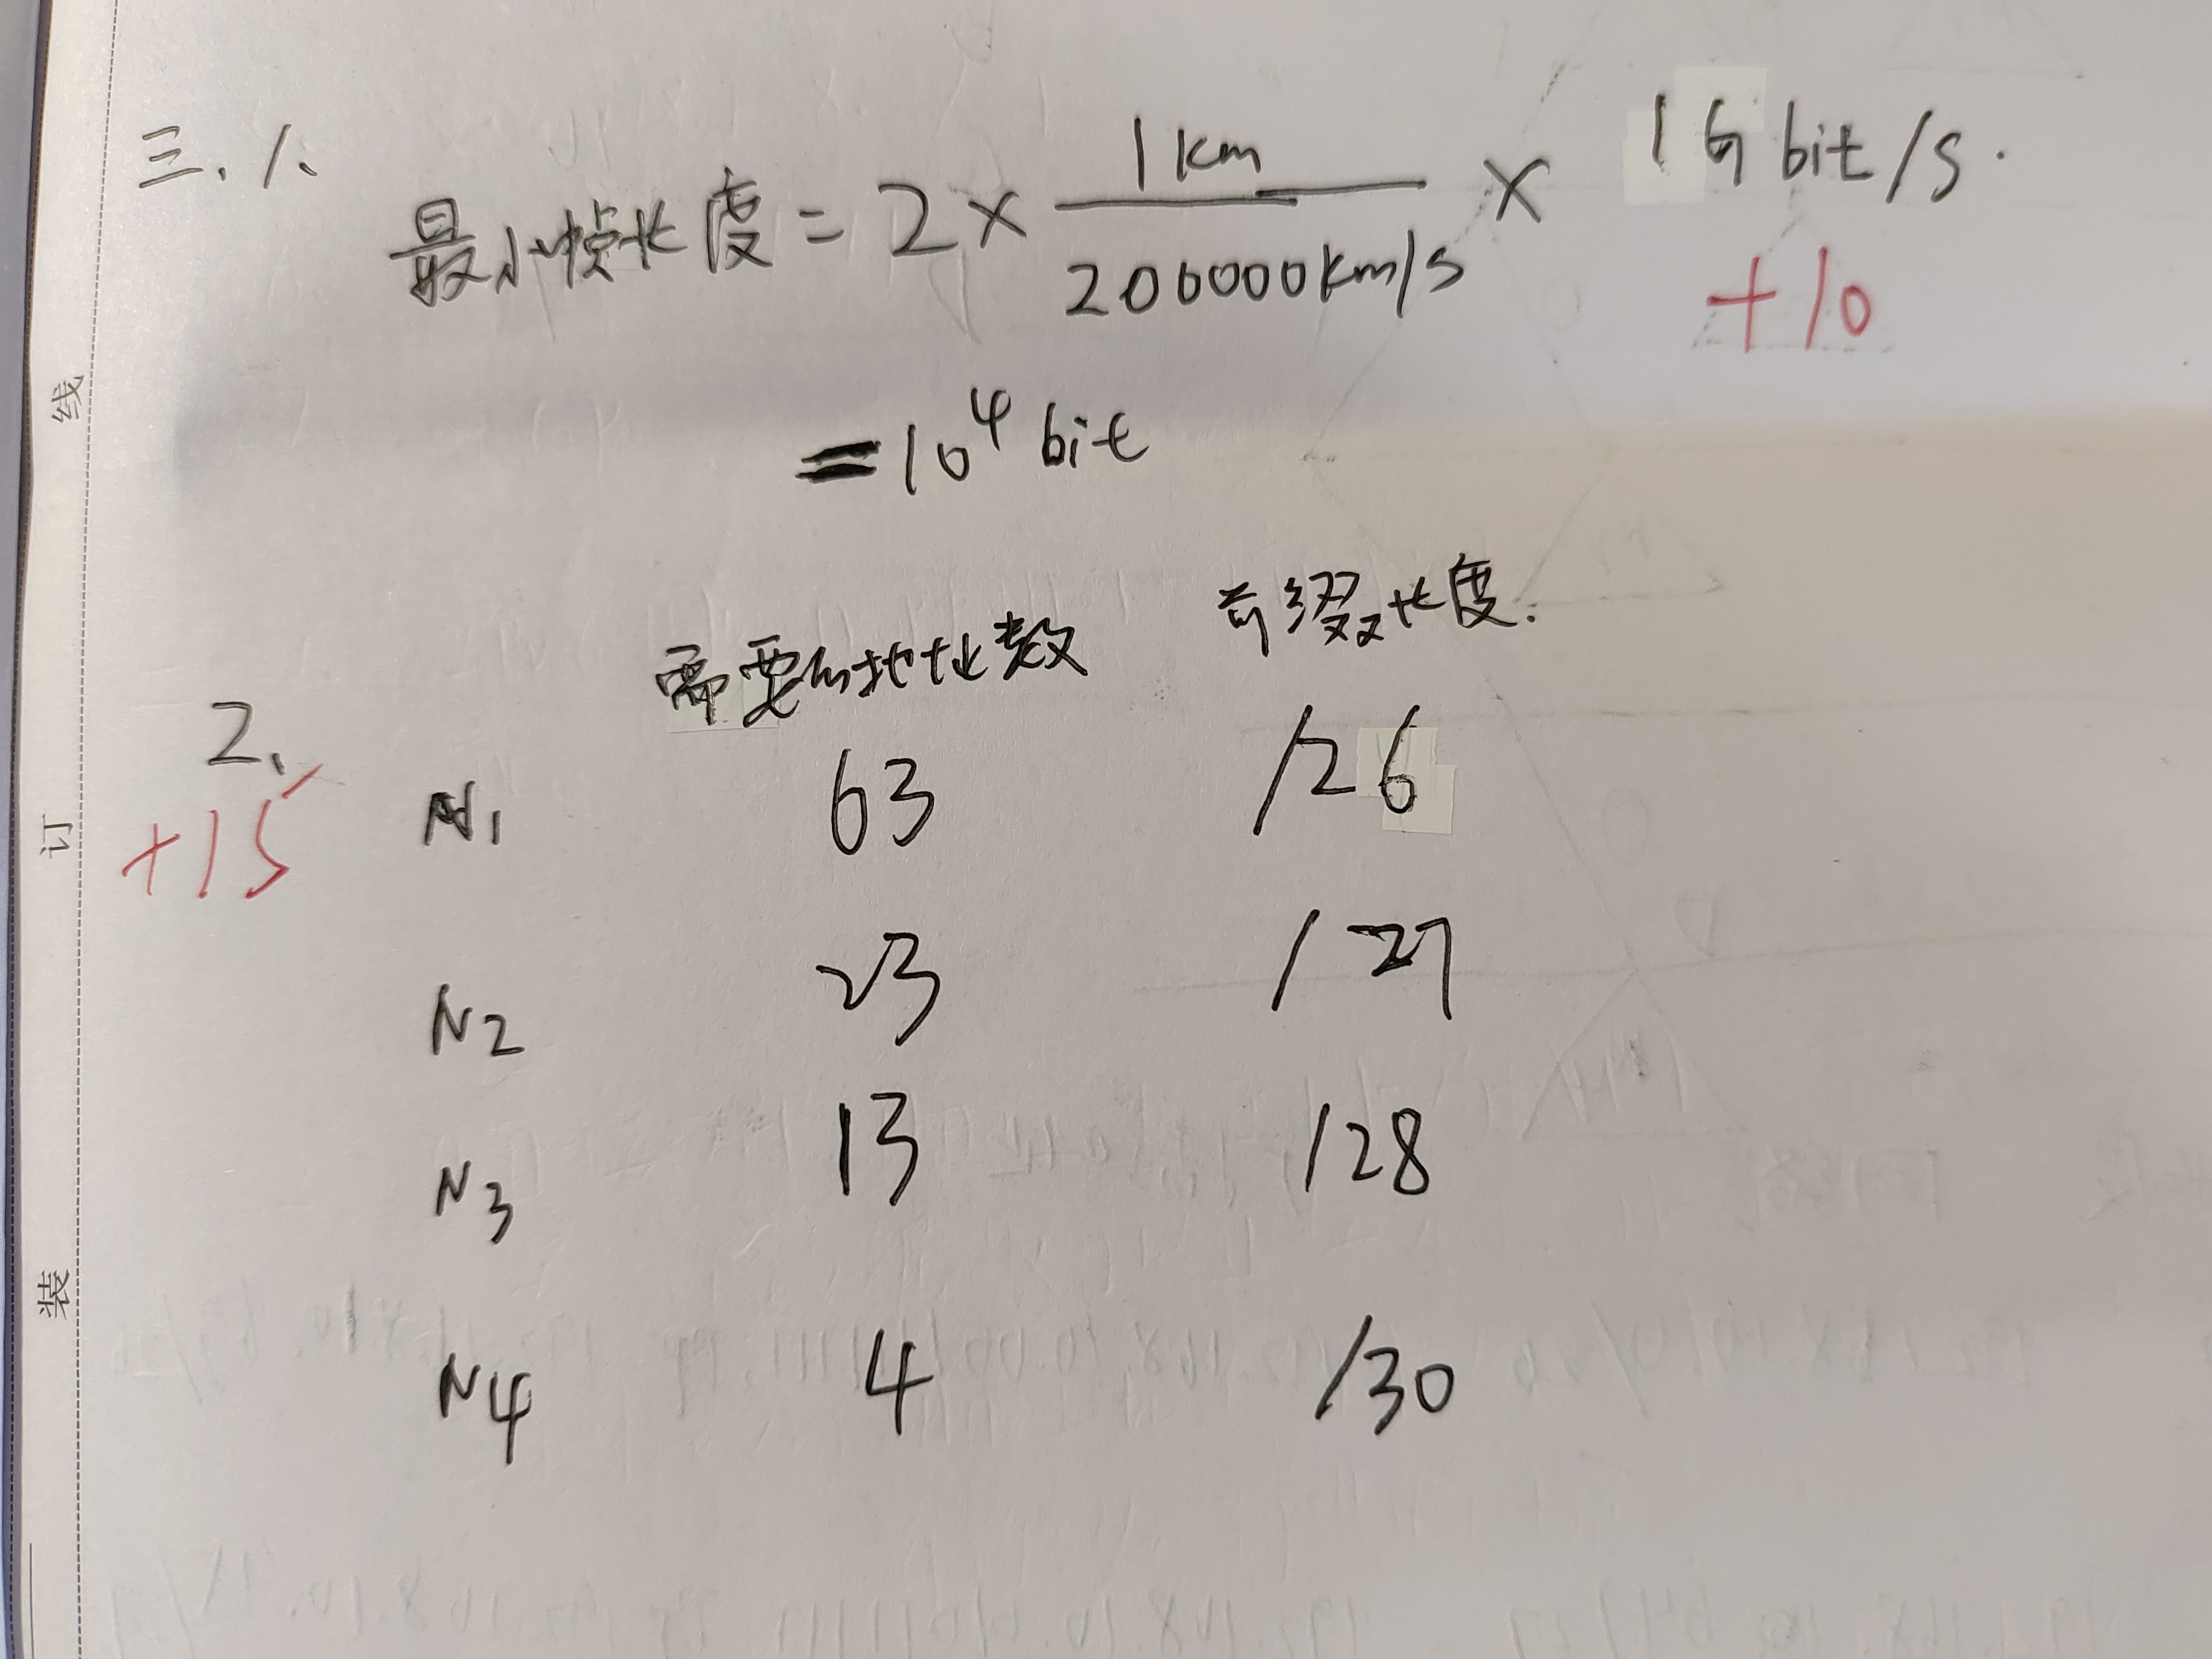 三、1、
最小帧长度 = 2 × 1km / 200000km/s × 1 G bit/s.
+10
= 10⁴ bit
需要的地址数 前缀长度.
2、
+15
N1 63 /26
N2 23 /27
N3 13 /28
N4 4 /30
线
订
装